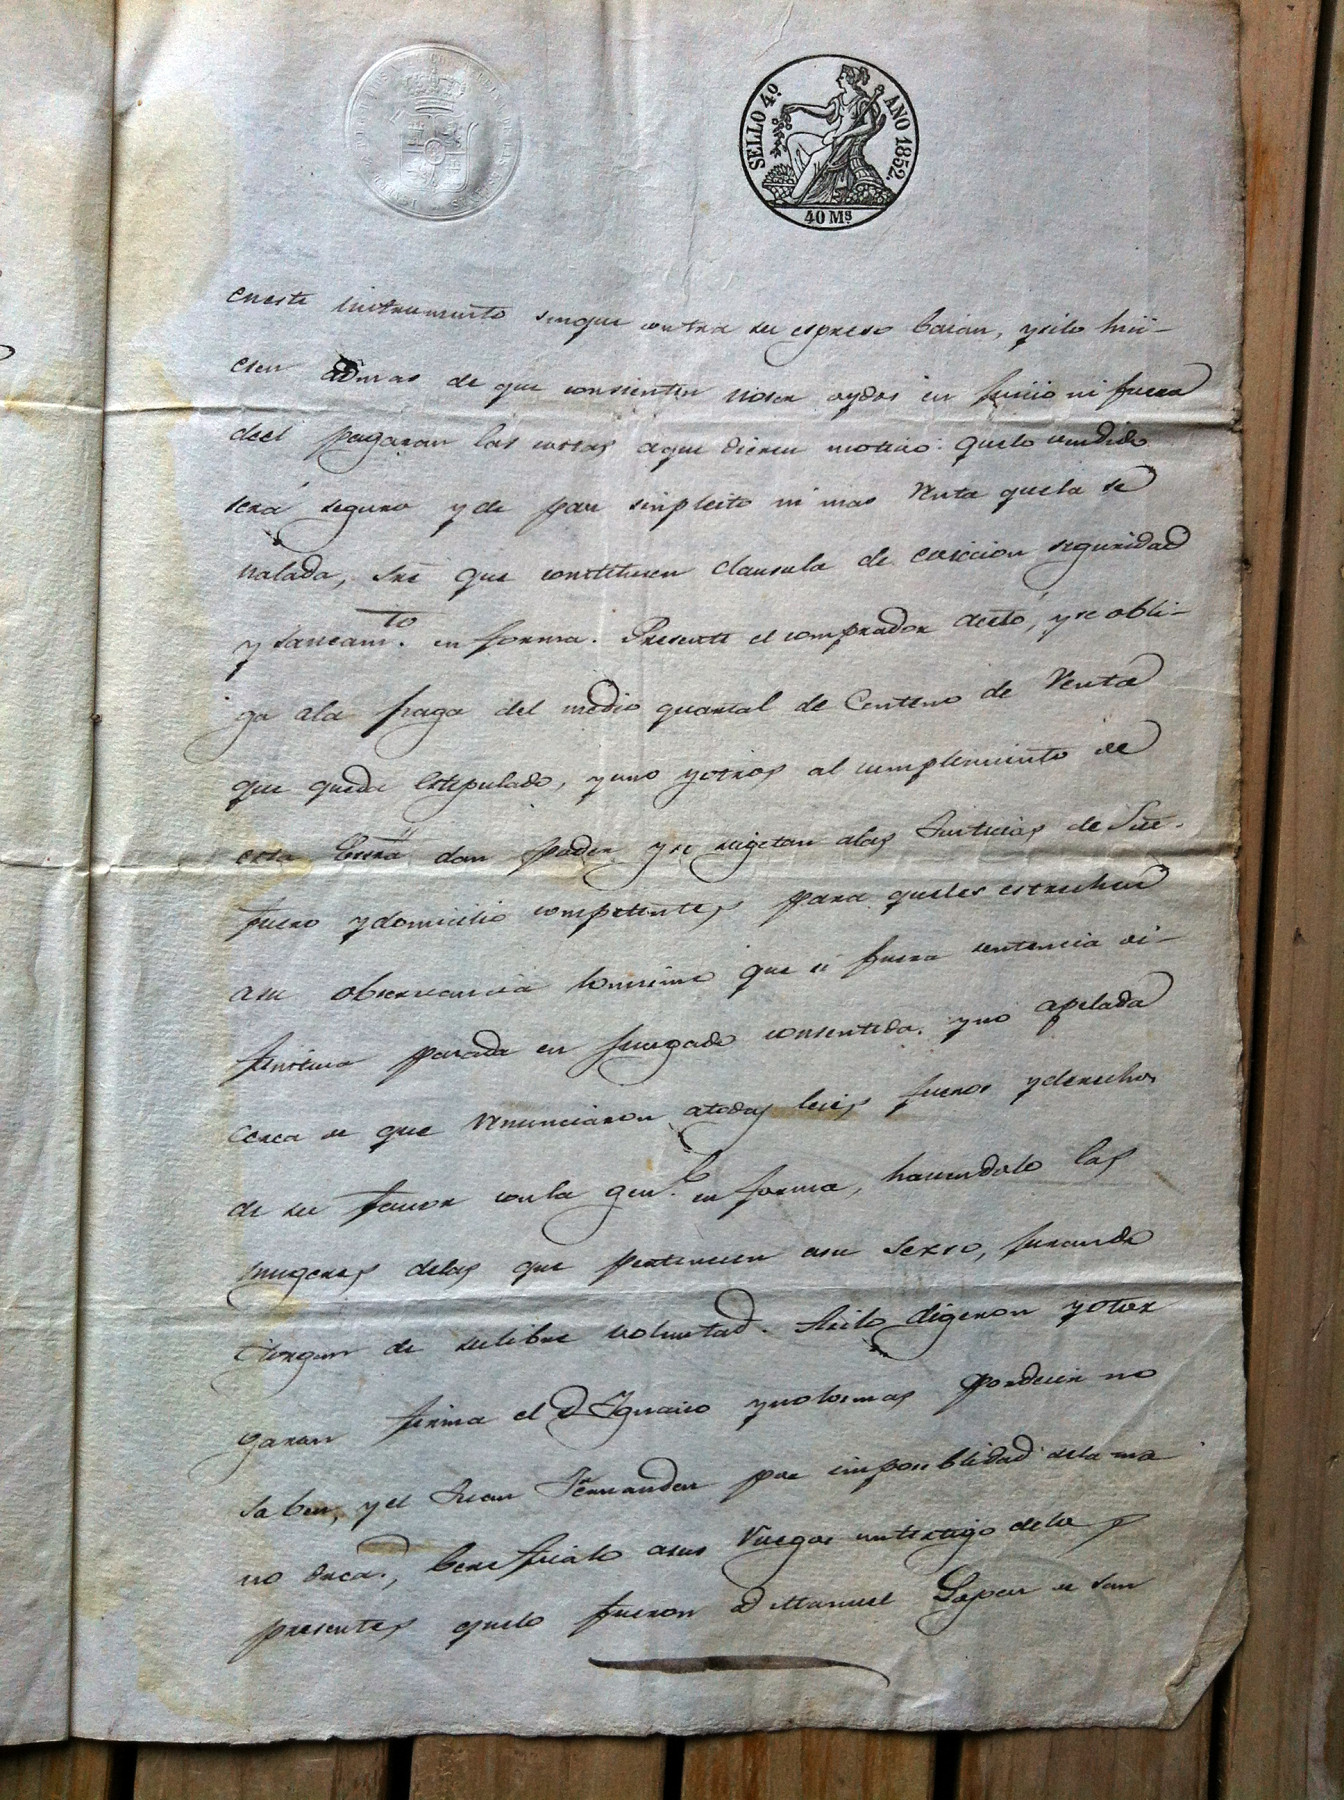 SELLO 4º AÑO 1852.
40 Ms
eneste instrumento sinque contra su espreso  , ysilo hici-
esen admas de que consienten noser oydos en Juicio ni fuera
deel pagaran las costas aque dieren motivo: quelo vendido
será seguro y de paz sinpleito ni mas Renta quela se
nalada, sre que constituien clausula de eviccion seguridad
y saneamto. en forma. Presente el comprador acetó, yse obli-
ga ala paga del medio quartal de Centeno de Renta
que queda Estipulado, yuno yotros al cumplimiento de
esta Escrã dan poder yse sugetan alas Justicias de Sue.
fuero ydomicilio competentes para queles estrechen
asu observancia Comsimo que si fuera sentencia di-
finitiva pasada en Juzgado consentida. yno apelada
cerca de que renunciaron atodas leies fueros yderechos
de su favor conla genl. en forma, haciendolo las
mugeres delas que pertenecen asu Sexso, Jurando
 de sulibre voluntad. Asilo digeron yotor
garon firma el D Ygnacio ynolosmas pordecir no
saben, yel Juan Fernandez por imposiblidad dela ma
no drca., hicre fucalo asus Ruegos untestigo delos
presentes quelo fueron D Manuel Lopez de San